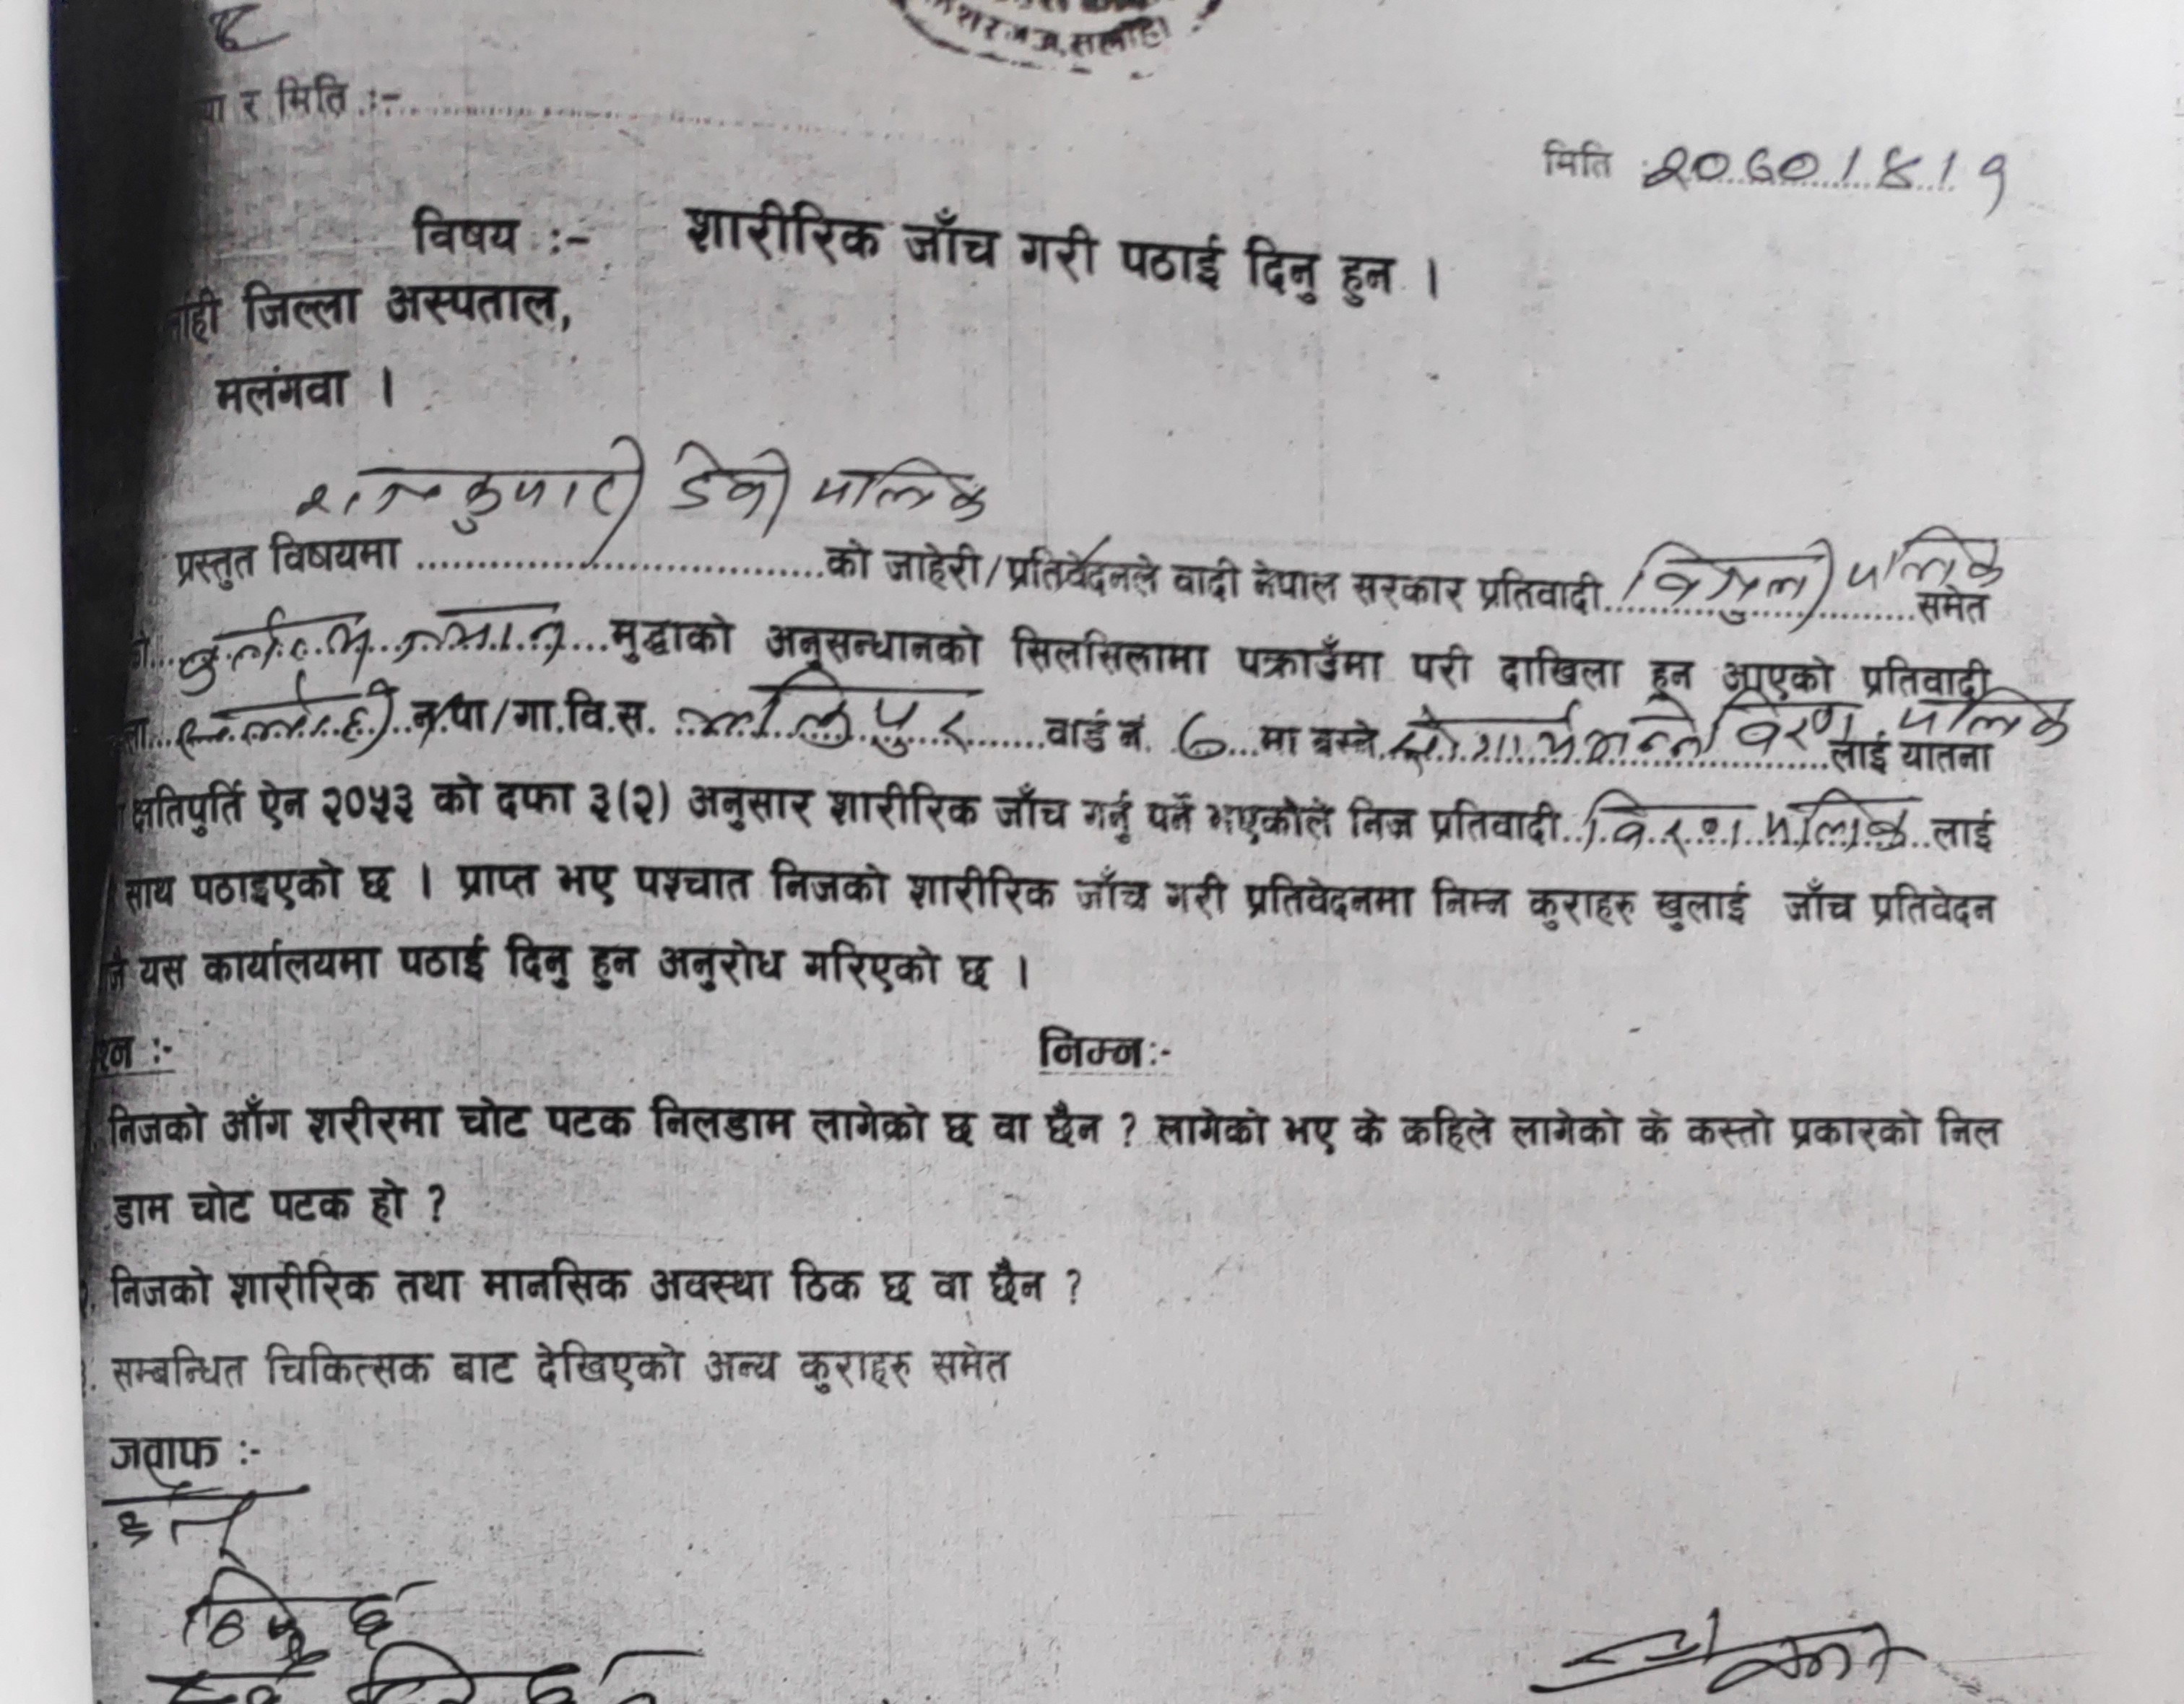 र मिति :-
मिति २०७०।४।१
विषय :- शारीरिक जाँच गरी पठाई दिनु हुन ।
जिल्ला अस्पताल,
मलंगवा ।
राजकुमारी देवी मलिक
प्रस्तुत विषयमा ..............................को जाहेरी/प्रतिवेदनले वादी नेपाल सरकार प्रतिवादी मलिक समेत
मुद्धाको अनुसन्धानको सिलसिलामा पक्राउँमा परी दाखिला हुन आएको प्रतिवादी
सर्लाही न.पा/गा.वि.स. वार्ड नं. ७ मा बस्ने मलिक लाई यातना
क्षतिपुर्ति ऐन २०५३ को दफा ३(२) अनुसार शारीरिक जाँच गर्नु पर्ने भएकोले निज प्रतिवादी मलिक लाई
साथ पठाइएको छ । प्राप्त भए पश्चात निजको शारीरिक जाँच गरी प्रतिवेदनमा निम्न कुराहरु खुलाई जाँच प्रतिवेदन
यस कार्यालयमा पठाई दिनु हुन अनुरोध गरिएको छ ।
निम्न:-
निजको आँग शरीरमा चोट पटक निलडाम लागेको छ वा छैन ? लागेको भए के कहिले लागेको के कस्तो प्रकारको निल
डाम चोट पटक हो ?
निजको शारीरिक तथा मानसिक अवस्था ठिक छ वा छैन ?
सम्बन्धित चिकित्सक बाट देखिएको अन्य कुराहरु समेत
जवाफ :-
छैन
ठिक छ